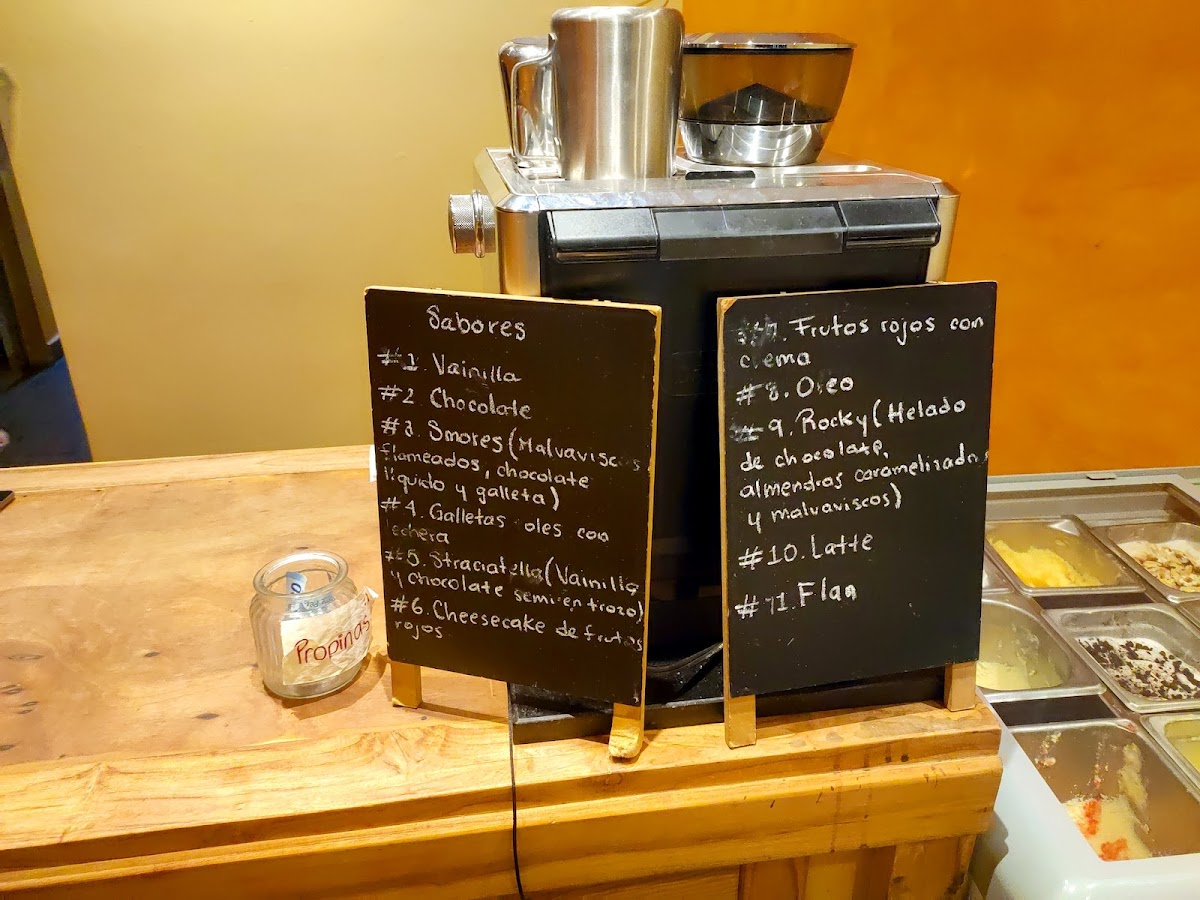 Sabores
#1. Vainilla
#2 Chocolate
#3. Smores (Malvaviscos
flameados, chocolate
líquido y galleta)
#4. Galletas oles con
lechera
#5. Straciatella (Vainilla
y chocolate semi en trozo)
#6. Cheesecake de frutos
rojos
#7. Frutos rojos con
crema
#8. Oreo
#9. Rocky (Helado
de chocolate,
almendras caramelizadas
y malvaviscos)
#10. Latte
#11. Flan
Propinas